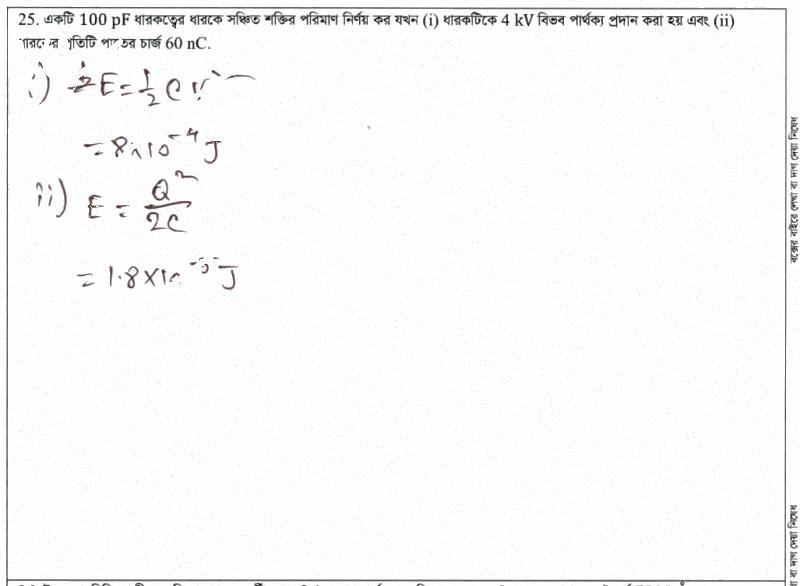 25. একটি 100 pF ধারকত্বের ধারকে সঞ্চিত শক্তির পরিমাণ নির্ণয় কর যখন (i) ধারকটিকে 4 kV বিভব পার্থক্য প্রদান করা হয় এবং (ii)
চার্জ 60 nC.
i) E = 1/2 C V²
= 8×10⁻⁴ J
ii) E = Q²/2C
= 1.8×10 J
বক্সের বাইরে লেখা বা দাগ দেয়া নিষেধ
বা দাগ দেয়া নিষেধ